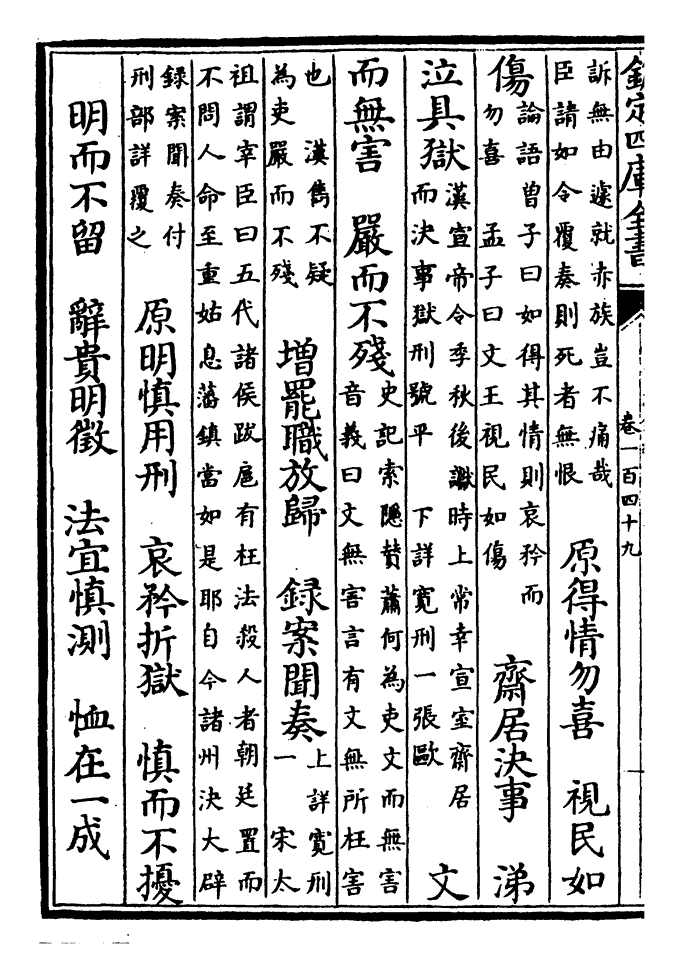 欽定四庫全書 卷一百四十九
訴無由遽就赤族豈不痛哉
臣請如令覆奏則死者無恨
原得情勿喜 視民如
傷
論語曾子曰如得其情則哀矜而
勿喜 孟子曰文王視民如傷
齋居決事 涕
泣具獄
漢宣帝令季秋後讞時上常幸宣室齋居
而決事獄刑號平 下詳寛刑一張歐
文
而無害 嚴而不殘
史記索隱賛蕭何為吏文而無害
音義曰文無害言有文無所枉害
也 漢雋不疑
為吏嚴而不殘
増罷職放歸 録案聞奏
上詳寛刑
一 宋太
祖謂宰臣曰五代諸侯跋扈有枉法殺人者朝廷置而
不問人命至重姑息藩鎮當如是耶自今諸州決大辟
録案聞奏付
刑部詳覆之
原明慎用刑 哀矜折獄 慎而不擾
明而不留 辭貴明徵 法宜慎測 恤在一成